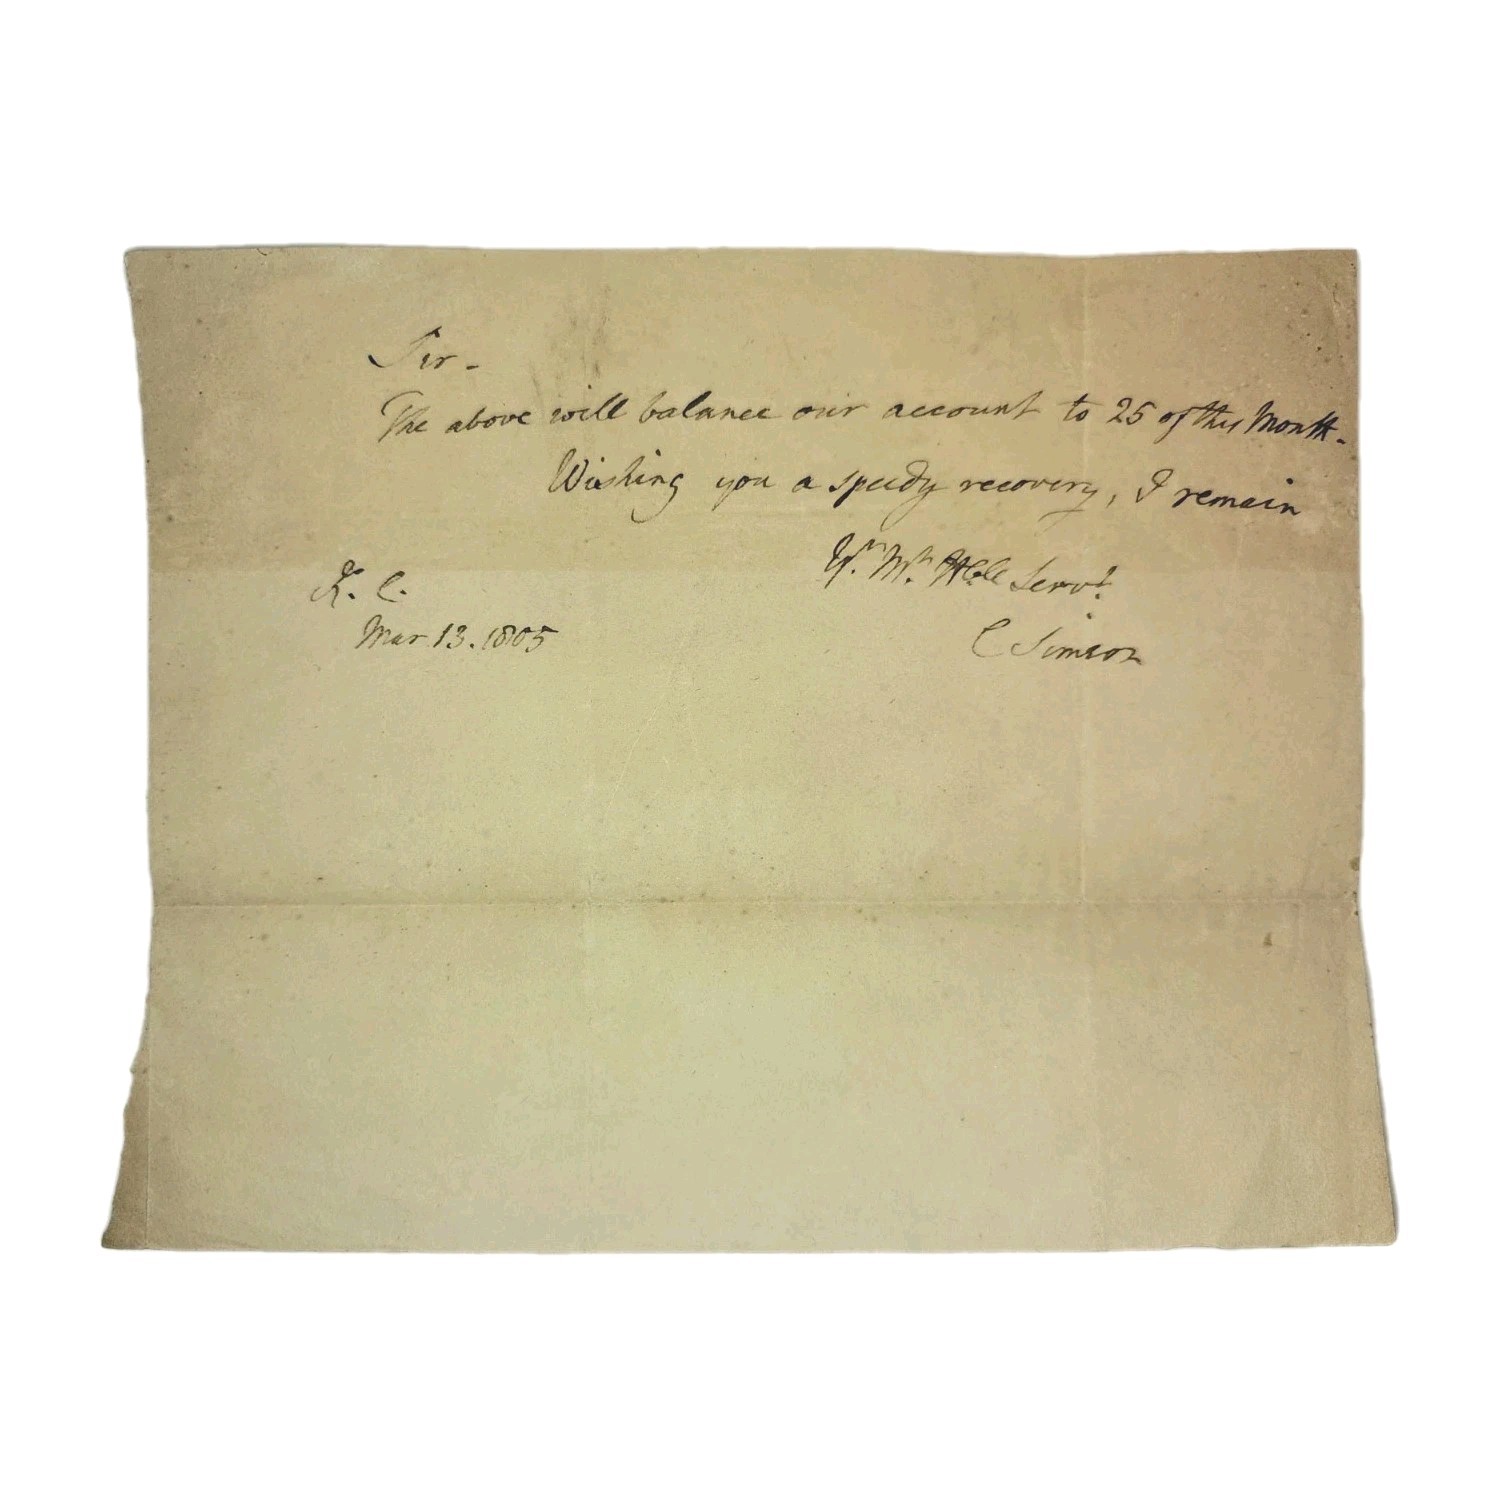 Sir -
The above will balance our account to 25 of this Month -
Wishing you a speedy recovery, I remain
Yr. Mt. Hble Servt.
K. C.
Mar 13. 1805
C Simeon